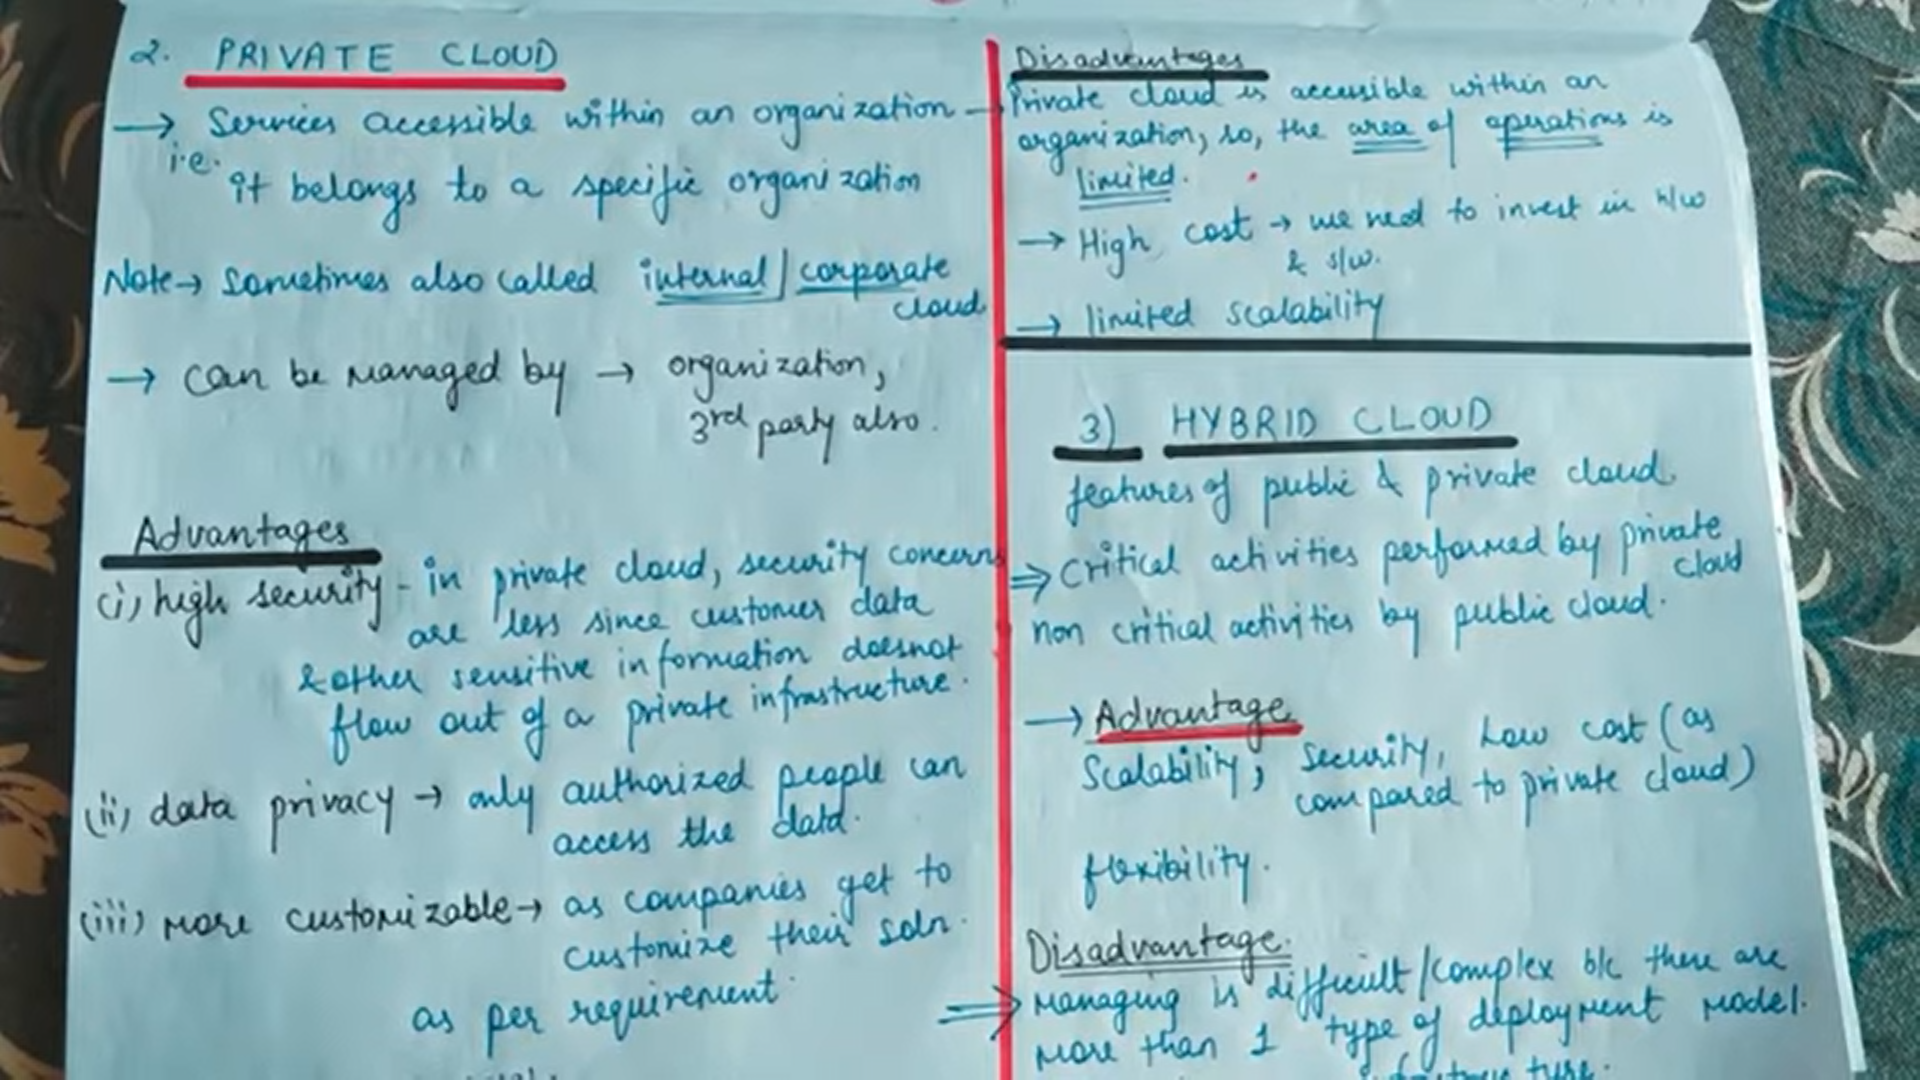 2. PRIVATE CLOUD
→ Services accessible within an organization
i.e. it belongs to a specific organization
Note → Sometimes also called internal / corporate
cloud
→ can be managed by → organization,
3rd party also.
Advantages
(i) high security - in private cloud, security concerns
are less since customer data
& other sensitive information doesnot
flow out of a private infrastructure.
(ii) data privacy → only authorized people can
access the data.
(iii) more customizable → as companies get to
customize their soln.
as per requirement.
Disadvantages
→ Private cloud is accessible within an
organization, so, the area of operations is
limited.
→ High cost → we need to invest in h/w
& s/w.
→ limited scalability
3) HYBRID CLOUD
features of public & private cloud
⇒ Critical activities performed by private
cloud
non critical activities by public cloud.
→ Advantage
Scalability, Security, Low cost (as
compared to private cloud)
flexibility.
Disadvantage.
⇒ Managing is difficult/complex b/c there are
more than 1 type of deployment model.